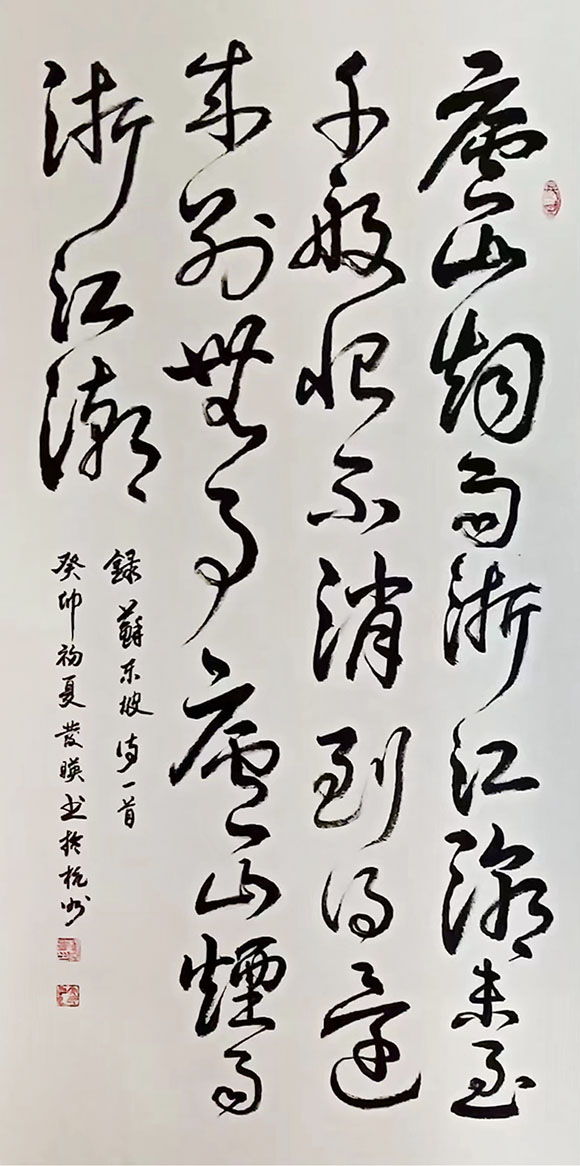 廬山烟雨浙江潮未至
千般恨不消到得還
来别無事廬山煙雨
浙江潮
録蘇东坡诗一首
癸卯初夏發暎书於杭州